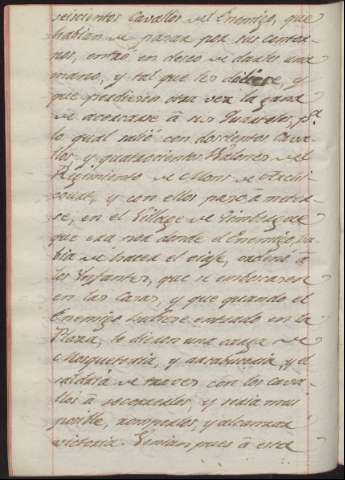 seiscientos Cavallos del Enemigo, que
habian de pasar por sus contor-
nos, entró en deseo de darles una
mano, y tal que les doliese, y
que perdiesen otra vez la gana
de acercarse á sus Quarteles, pr.
lo qual salió con doscientos Cava-
llos y quatrocientos Walones del
Regimiento de Mons de
y con ellos pasó á meter-
se, en el Village de
que era por donde el Enemigo ha-
bia de hacer el viaje, ordenó á
los Infantes, que se emboscasen
en las Casas, y que quando el
Enemigo hubiese entrado en la
Plaza, le diesen una carga de
Mosqueteria, y arcabuceria, y el
saldria de traves con los Cava-
llos á socorrerles, y seria mas
posible, romperlos, y alcanzar
victoria. Tenian pues á esta